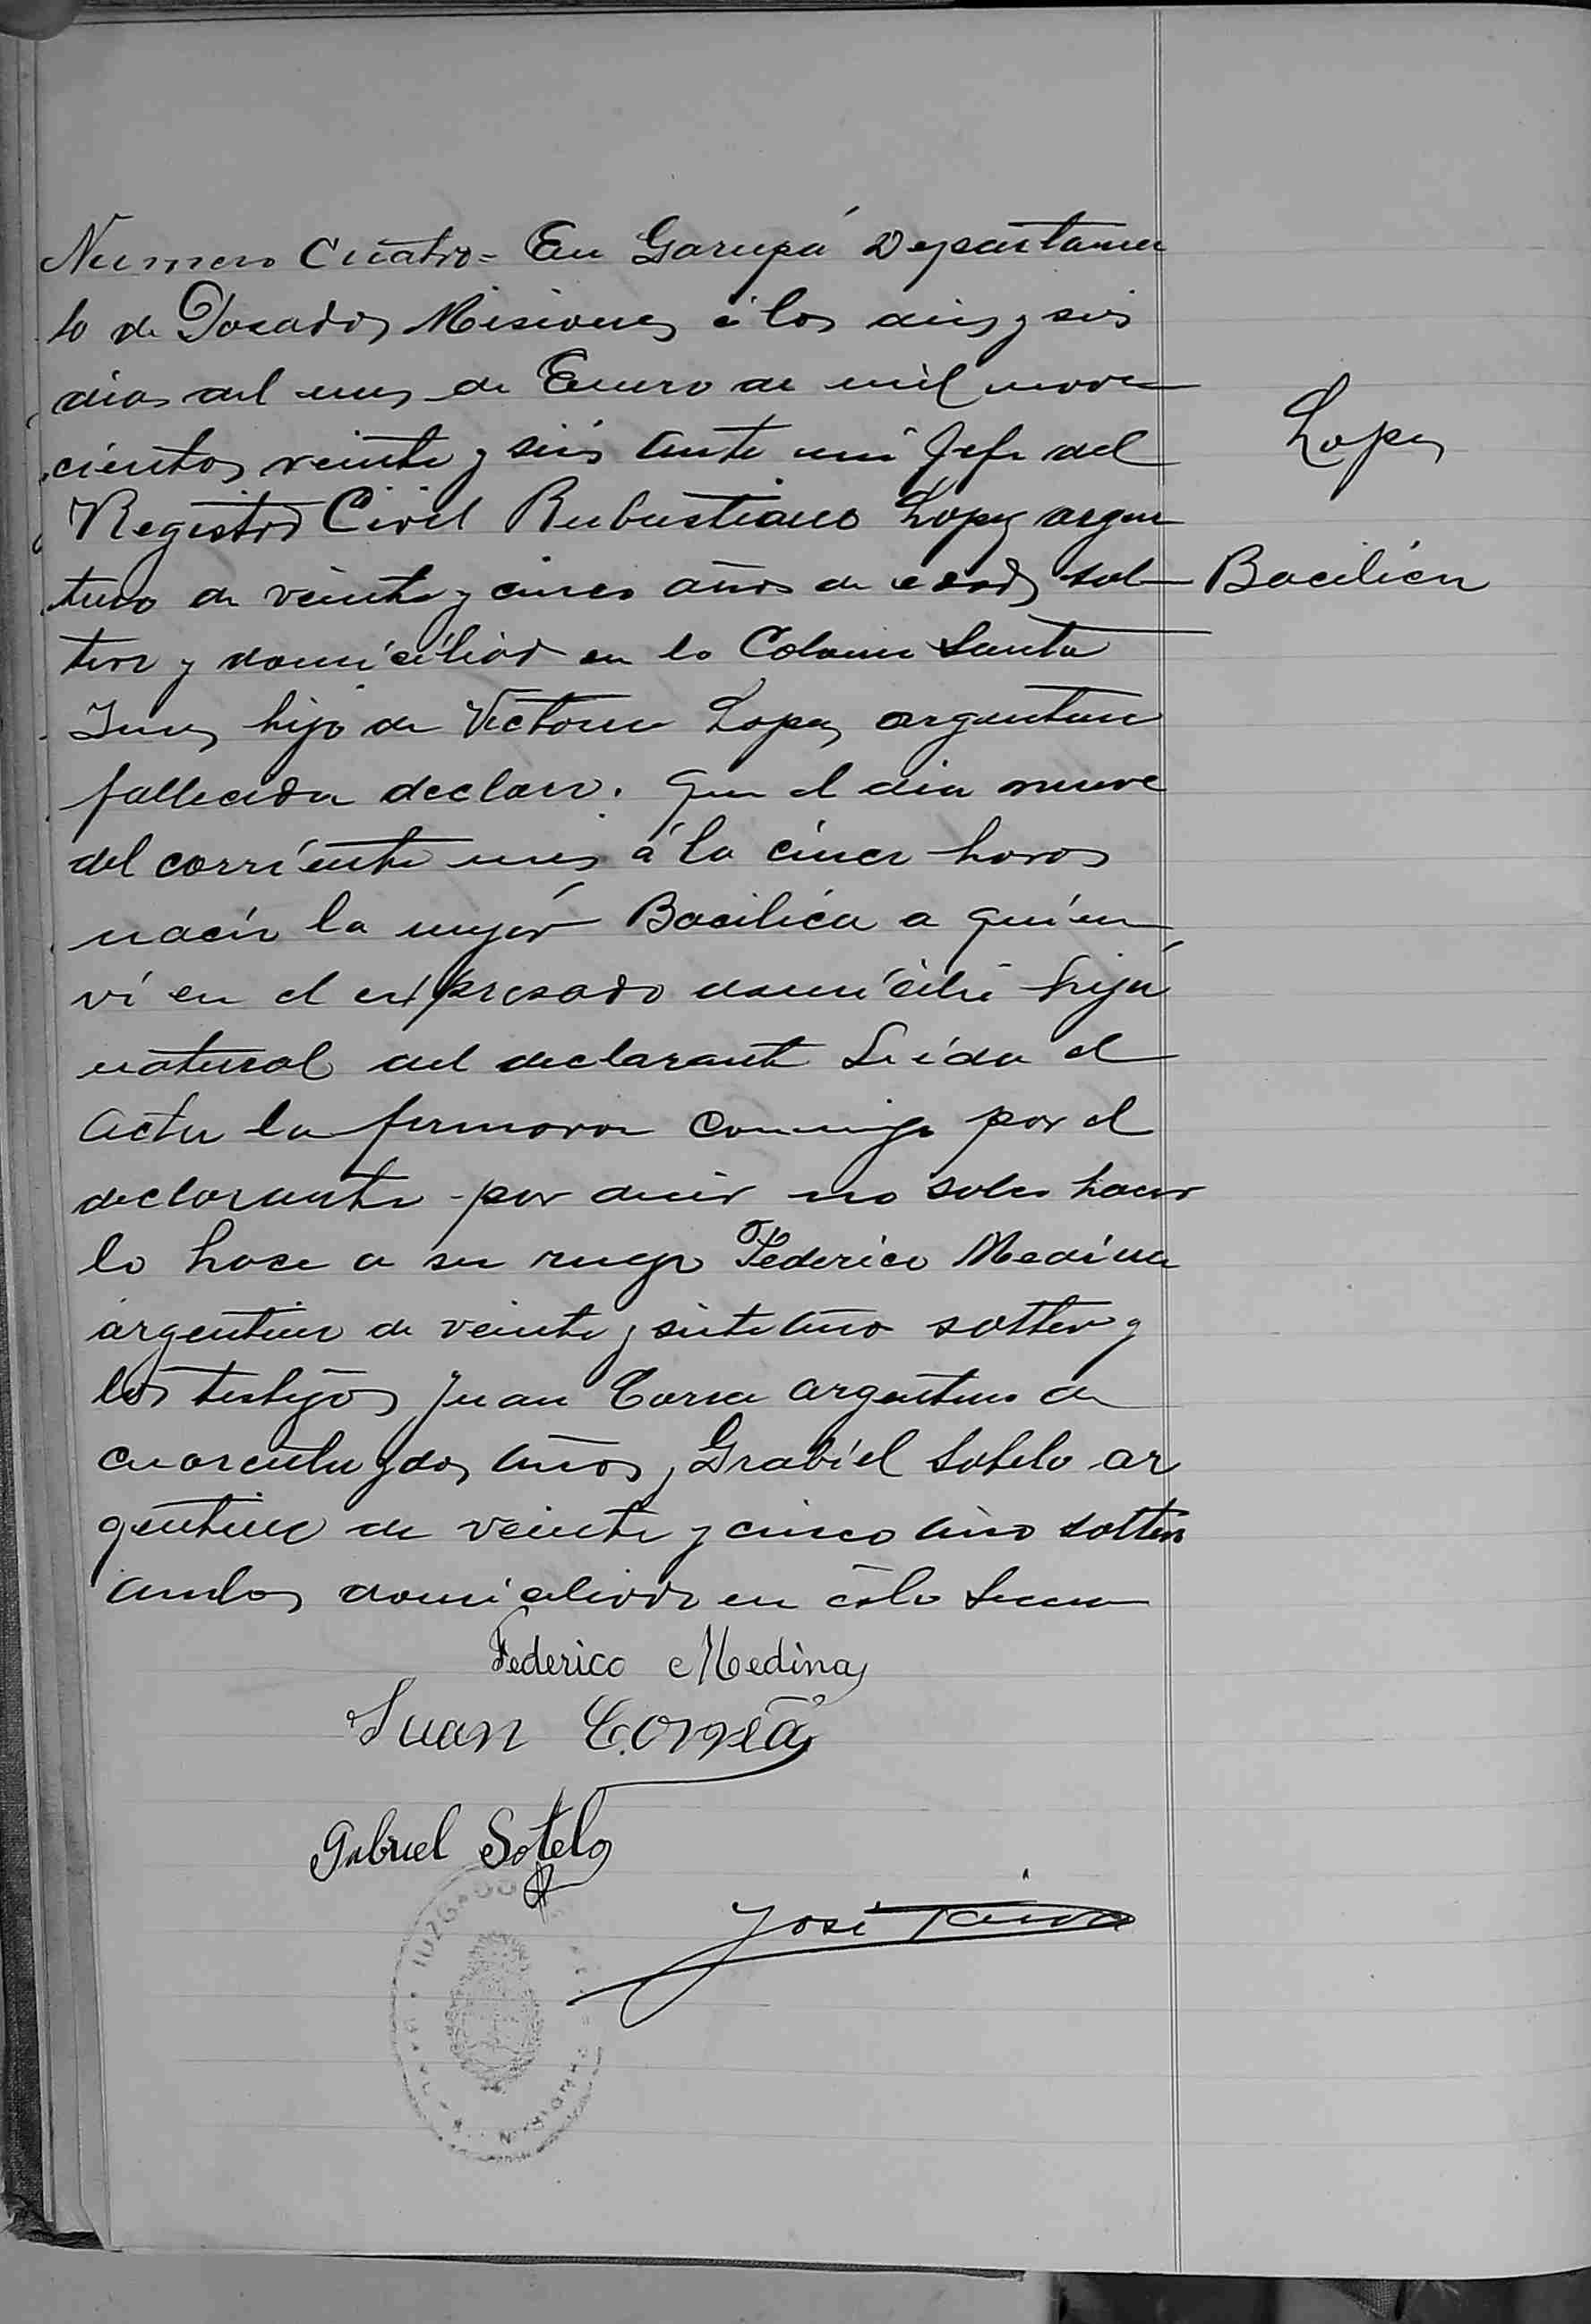 Numero Cuatro = En Garupá Departamen
to de Posadas Misiones á los diez y seis
dias del mes de Enero de mil nove
cientos veinte y seis ante mi Jefe del
Registro Civil Rubustiano Lopez argen
tino de veinte y cinco años de edad, sol
tero y domiciliado en la Colonia Santa
Ines, hijo de Victoria Lopez argentina
fallecida declaro. Que el dia nueve
del corriente mes á la cinco horas
nacio la mujer Bacilica a quien
vi en el expresado domicilio hija
natural del declarante Leida el
acta la firmaron conmigo por el
declarante por decir no saber hacer
lo hace a su ruego Federico Medina
argentino de veinte y siete año soltero y
los testigos Juan Correa argentino de
cuarenta y dos años y Grabiel Sotelo ar
gentino de veinte y cinco año soltero
ambos domiciliado en
Lopez
Bacilica
Federico Medina
Juan Correa
Gabriel Sotelo
José Paiva
JUZGADO